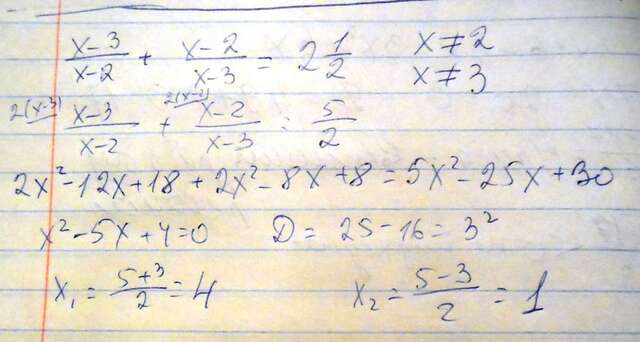 (x-3)/(x-2) + (x-2)/(x-3) = 2 1/2 x ≠ 2
x ≠ 3
2(x-3) (x-3)/(x-2) + 2(x-2) (x-2)/(x-3) = 5/2
2x²-12x+18+2x²-8x+8=5x²-25x+30
x²-5x+4=0 D=25-16=3²
x₁=(5+3)/2=4 x₂=(5-3)/2=1